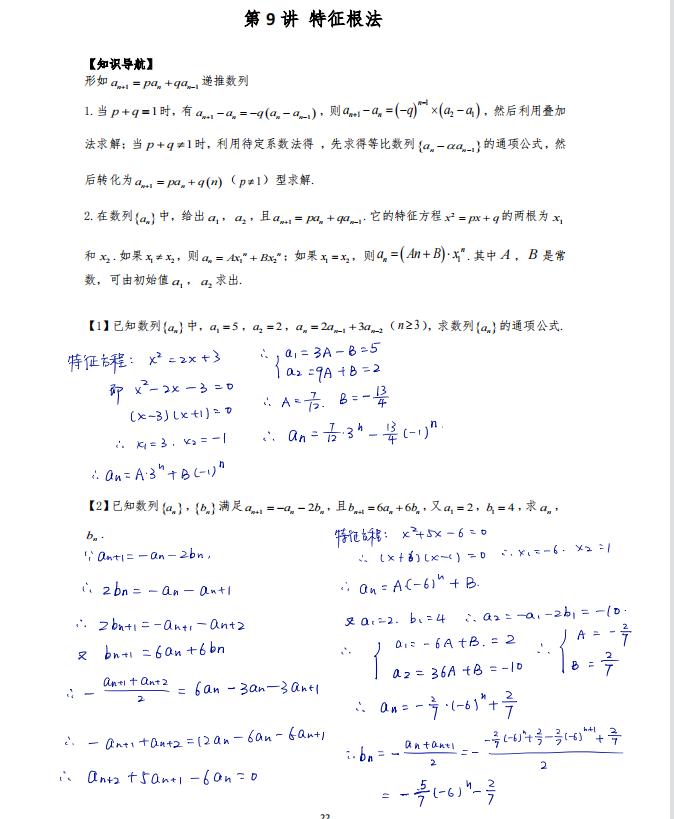 第 9 讲 特征根法
【知识导航】
形如 aₙ₊₁ = paₙ + qaₙ₋₁ 递推数列
1. 当 p + q = 1 时, 有 aₙ₊₁ − aₙ = −q(aₙ − aₙ₋₁), 则 aₙ₊₁ − aₙ = (−q)ⁿ⁻¹ × (a₂ − a₁), 然后利用叠加
法求解; 当 p + q ≠ 1 时, 利用待定系数法得 , 先求得等比数列 {aₙ − αaₙ₋₁} 的通项公式, 然
后转化为 aₙ₊₁ = paₙ + q(n) ( p ≠ 1 ) 型求解.
2. 在数列 {aₙ} 中, 给出 a₁ , a₂ , 且 aₙ₊₁ = paₙ + qaₙ₋₁. 它的特征方程 x² = px + q 的两根为 x₁
和 x₂ . 如果 x₁ ≠ x₂ , 则 aₙ = Ax₁ⁿ + Bx₂ⁿ ; 如果 x₁ = x₂ , 则 aₙ = (An + B)·x₁ⁿ . 其中 A , B 是常
数, 可由初始值 a₁ , a₂ 求出.
【1】已知数列 {aₙ} 中, a₁ = 5 , a₂ = 2 , aₙ = 2aₙ₋₁ + 3aₙ₋₂ ( n ≥ 3 ), 求数列 {aₙ} 的通项公式.
特征方程: x² = 2x + 3
即 x² − 2x − 3 = 0
(x−3)(x+1) = 0
∴ x₁ = 3 . x₂ = −1
∴ aₙ = A·3ⁿ + B(−1)ⁿ
∴ { a₁ = 3A − B = 5
a₂ = 9A + B = 2
∴ A = 7/12 . B = −13/4
∴ aₙ = 7/12·3ⁿ − 13/4 (−1)ⁿ.
【2】已知数列 {aₙ} , {bₙ} 满足 aₙ₊₁ = −aₙ − 2bₙ , 且 bₙ₊₁ = 6aₙ + 6bₙ , 又 a₁ = 2 , b₁ = 4 , 求 aₙ ,
bₙ .
∵ aₙ₊₁ = −aₙ − 2bₙ ,
∴ 2bₙ = −aₙ − aₙ₊₁
∴ 2bₙ₊₁ = −aₙ₊₁ − aₙ₊₂
又 bₙ₊₁ = 6aₙ + 6bₙ
∴ − (aₙ₊₁ + aₙ₊₂)/2 = 6aₙ − 3aₙ − 3aₙ₊₁
∴ − aₙ₊₁ + aₙ₊₂ = 12aₙ − 6aₙ − 6aₙ₊₁
∴ aₙ₊₂ + 5aₙ₊₁ − 6aₙ = 0
特征方程: x² + 5x − 6 = 0
∴ (x+6)(x−1) = 0 ∴ x₁ = −6 . x₂ = 1
∴ aₙ = A(−6)ⁿ + B.
又 a₁ = 2 . b₁ = 4 ∴ a₂ = −a₁ − 2b₁ = −10.
∴ { a₁ = −6A + B. = 2 ∴ { A = −2/7
a₂ = 36A + B = −10 B = 2/7
∴ aₙ = −2/7·(−6)ⁿ + 2/7
∴ bₙ = − (aₙ + aₙ₊₁)/2 = − (−2/7(−6)ⁿ + 2/7 − 2/7(−6)ⁿ⁺¹ + 2/7)/2
= −5/7(−6)ⁿ − 2/7
22